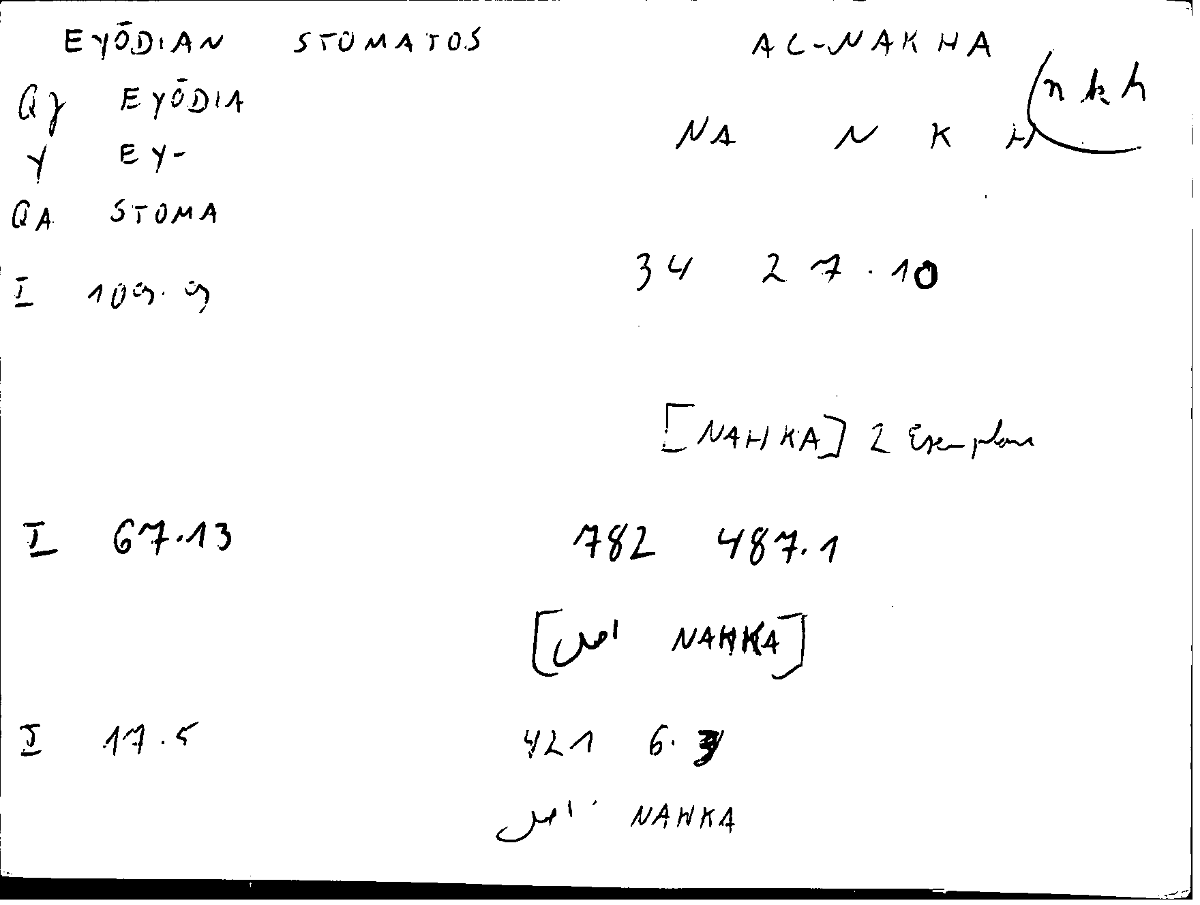 EYŌDIAN STOMATOS AL-NAKHA
QZ EYŌDIA (nkh
Y EY- NA N K H
QA STOMA
I 109.9 34 27.10
[NAHKA] 2
I 67.13 782 487.1
[اصل NAHKA]
I 17.5 421 6.
اصل NAHKA